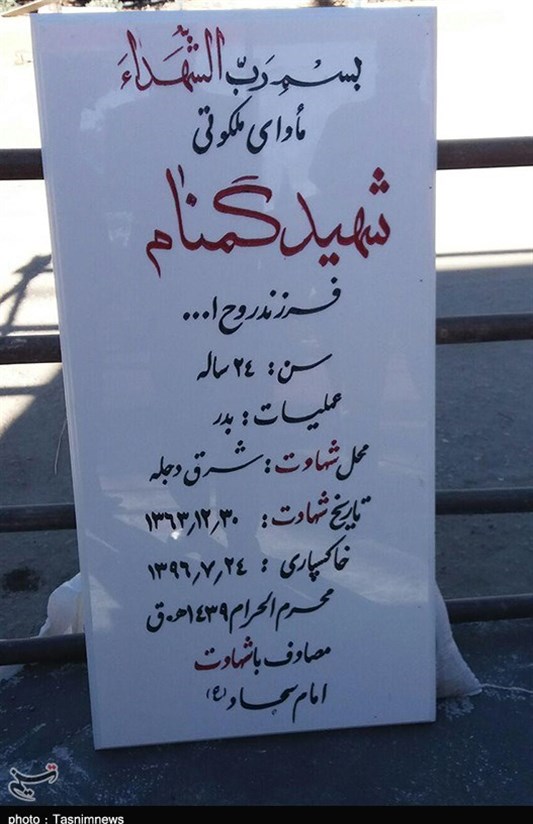 بسم رَبّ الشُّهَداءَ
مأوای ملکوتی
شهید گمنام
فرزند روح ا...
سن: ۲۴ ساله
عملیات: بدر
محل شهادت: شرق دجله
تاریخ شهادت: ۱۳۶۳,۱۲,۳۰
خاکسپاری: ۱۳۹۶,۷,۲۴
محرم الحرام ۱۴۳۹ه.ق
مصادف با شهادت
امام سجاد (ع)
تسنیم
photo : Tasnimnews